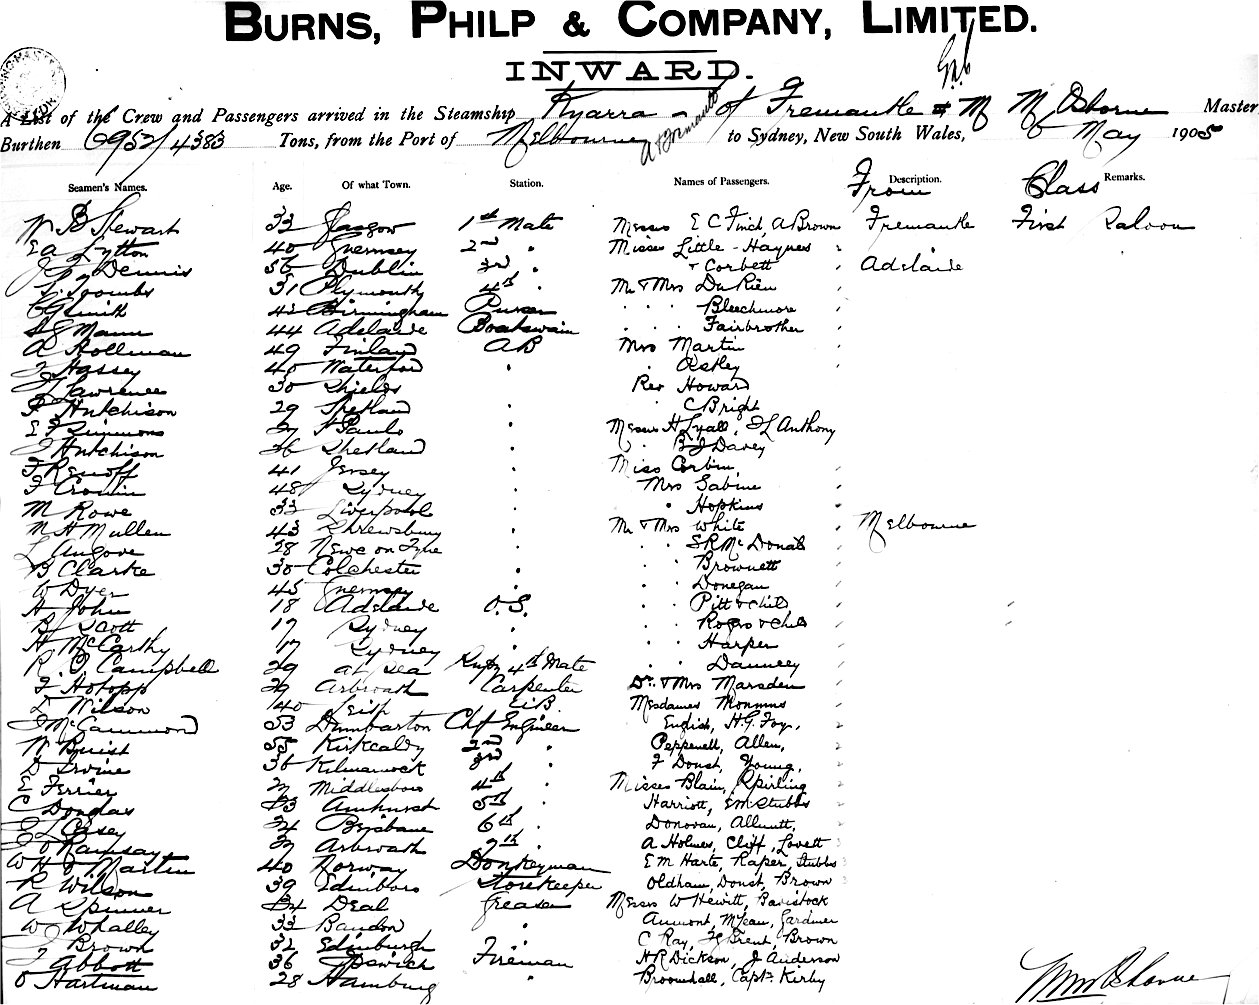 BURNS, PHILP & COMPANY, LIMITED.
INWARD.
A List of the Crew and Passengers arrived in the Steamship Kyarra of Fremantle M Osborne Master
Burthen 6952/4383 Tons, from the Port of Melbourne to Sydney, New South Wales, May 1905
Seamen's Names. Age. Of what Town. Station. Names of Passengers. From Description. Class Remarks.
W B Stewart 33 Glasgow 1st Mate Messrs E C Finch, A Brown Fremantle First Saloon
E A Lytton 40 Guernsey 2nd " Misses Little - Haynes "
Dennis 56 Dublin 3rd " " Corbett Adelaide
Toombs 31 Plymouth 4th " Mr & Mrs Du Rieu "
Smith 42 Birmingham Purser " " Bleechmore "
Mann 44 Adelaide Boatswain " " Fairbrother "
A Hollman 49 Finland AB Mrs Martin "
Hassey 40 Waterford " " Astley "
Lawrence 30 Shields Rev Howard
Hutchison 29 Shetland " " C Bright
E F Simmons 27 St Pauls " Messrs H Lyall, F L Anthony
Hutchison 26 Shetland " " Davey
F Renoff 41 Jersey " Miss Corbin, "
F Cronin 48 Sydney " Mrs Sabine "
M Rowe 33 Liverpool " " Hopkins "
M H Mullen 43 Shrewsbury " Mr & Mrs White " Melbourne
L Angove 28 Newc on Tyne " " " McDonald "
B Clarke 30 Colchester " " " Brownett "
W Dyer 45 Guernsey " " " Donegan "
A John 18 Adelaide O.S. " " Pitt & child "
B Scott 17 Sydney " " " Rogers & child "
H McCarthy 17 Sydney " " " Harper "
R. O Campbell 29 at sea 4th Mate " " Dauncey "
F Hotopp 29 Arbroath Carpenter Dr. & Mrs Marsden "
Wilson 40 Leith A.B. Mesdames
McCammond 53 Dumbarton Chf Engineer English, H.G. Foy, "
Buist 55 Kirkcaldy 2nd " Peppenell, Allen, "
D Irvine 36 Kilmarnock 3rd " F Doust, Young, "
E Ferrier 27 Middlesboro 4th " Misses Blain, Spirling
C Douglas 23 Amhurst 5th " Harriott, E M Stubbs "
Casey 24 Brisbane 6th " Donovan, Allnutt, "
Ramsay 27 Arbroath 7th " A Holmes, Cliff, Lovett "
W H Martin 40 Norway Donkeyman E M Harte, Raper, Stubbs "
R Wilson 39 Edinboro Storekeeper Oldham, Doust, Brown "
A Spinner 34 Deal Greaser Messrs W Hewitt, Bavistock "
W Whalley 33 Bandon " Aumont, McLean, Gardner
Brown 32 Edinburgh " C Ray, Brent, Brown
Abbott 36 Ipswich Fireman H R Dickson, J Anderson
O Hartman 28 Hamburg " Broomhall, Capt. Kirby